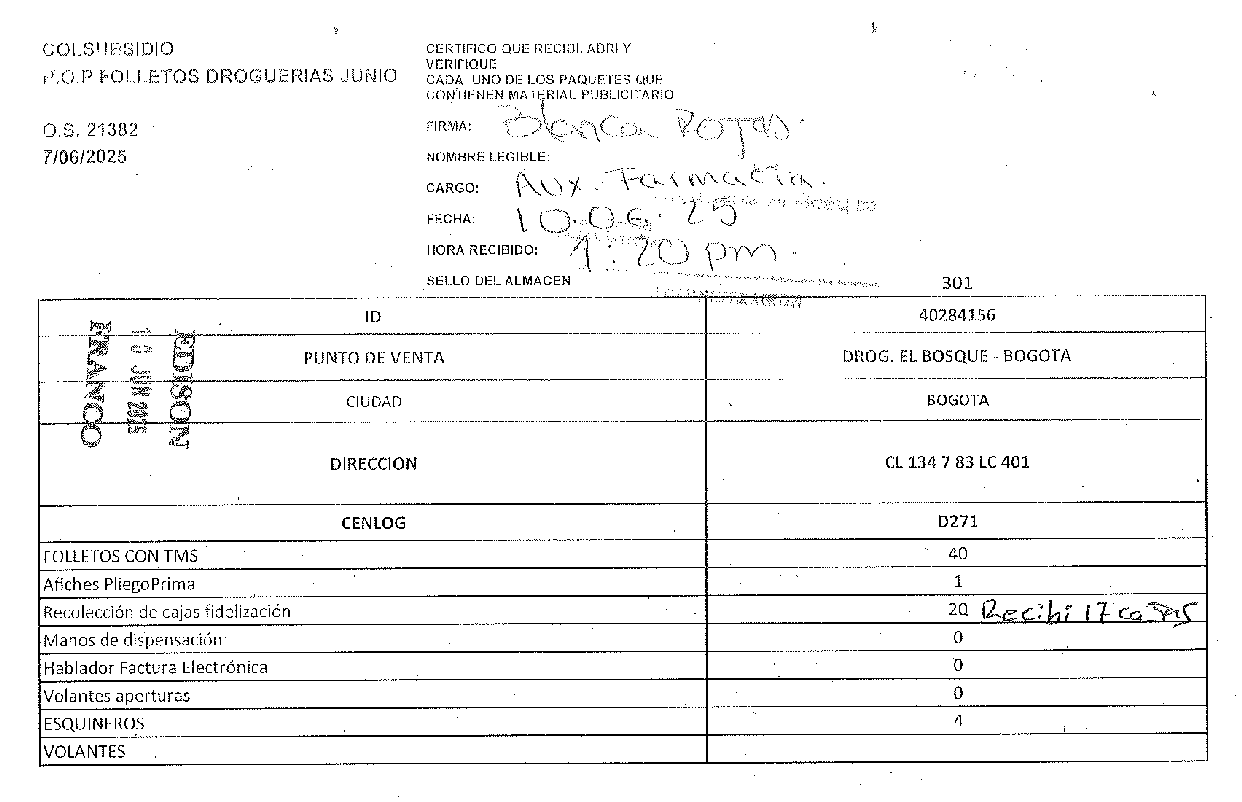 COLSUBSIDIO
P.O.P FOLLETOS DROGUERIAS JUNIO
O.S. 21382
7/06/2025
CERTIFICO QUE RECIBI, ABRI Y
VERIFIQUE
CADA UNO DE LOS PAQUETES QUE
CONTIENEN MATERIAL PUBLICITARIO
FIRMA: Blanca Rojas
NOMBRE LEGIBLE:
CARGO: Aux. Farmacia.
FECHA: 10.06.25
HORA RECIBIDO: 1:20 pm.
SELLO DEL ALMACEN
301
ID 40284156
PUNTO DE VENTA DROG. EL BOSQUE - BOGOTA
CIUDAD BOGOTA
DIRECCION CL 134 7 83 LC 401
CENLOG D271
EDISON
10 JUN 2025
FRANCO
FOLLETOS CON TMS 40
Afiches PliegoPrima 1
Recolección de cajas fidelización 20 Recibi 17 cajas
Manos de dispensación 0
Hablador Factura Electrónica 0
Volantes aperturas 0
ESQUINEROS 4
VOLANTES